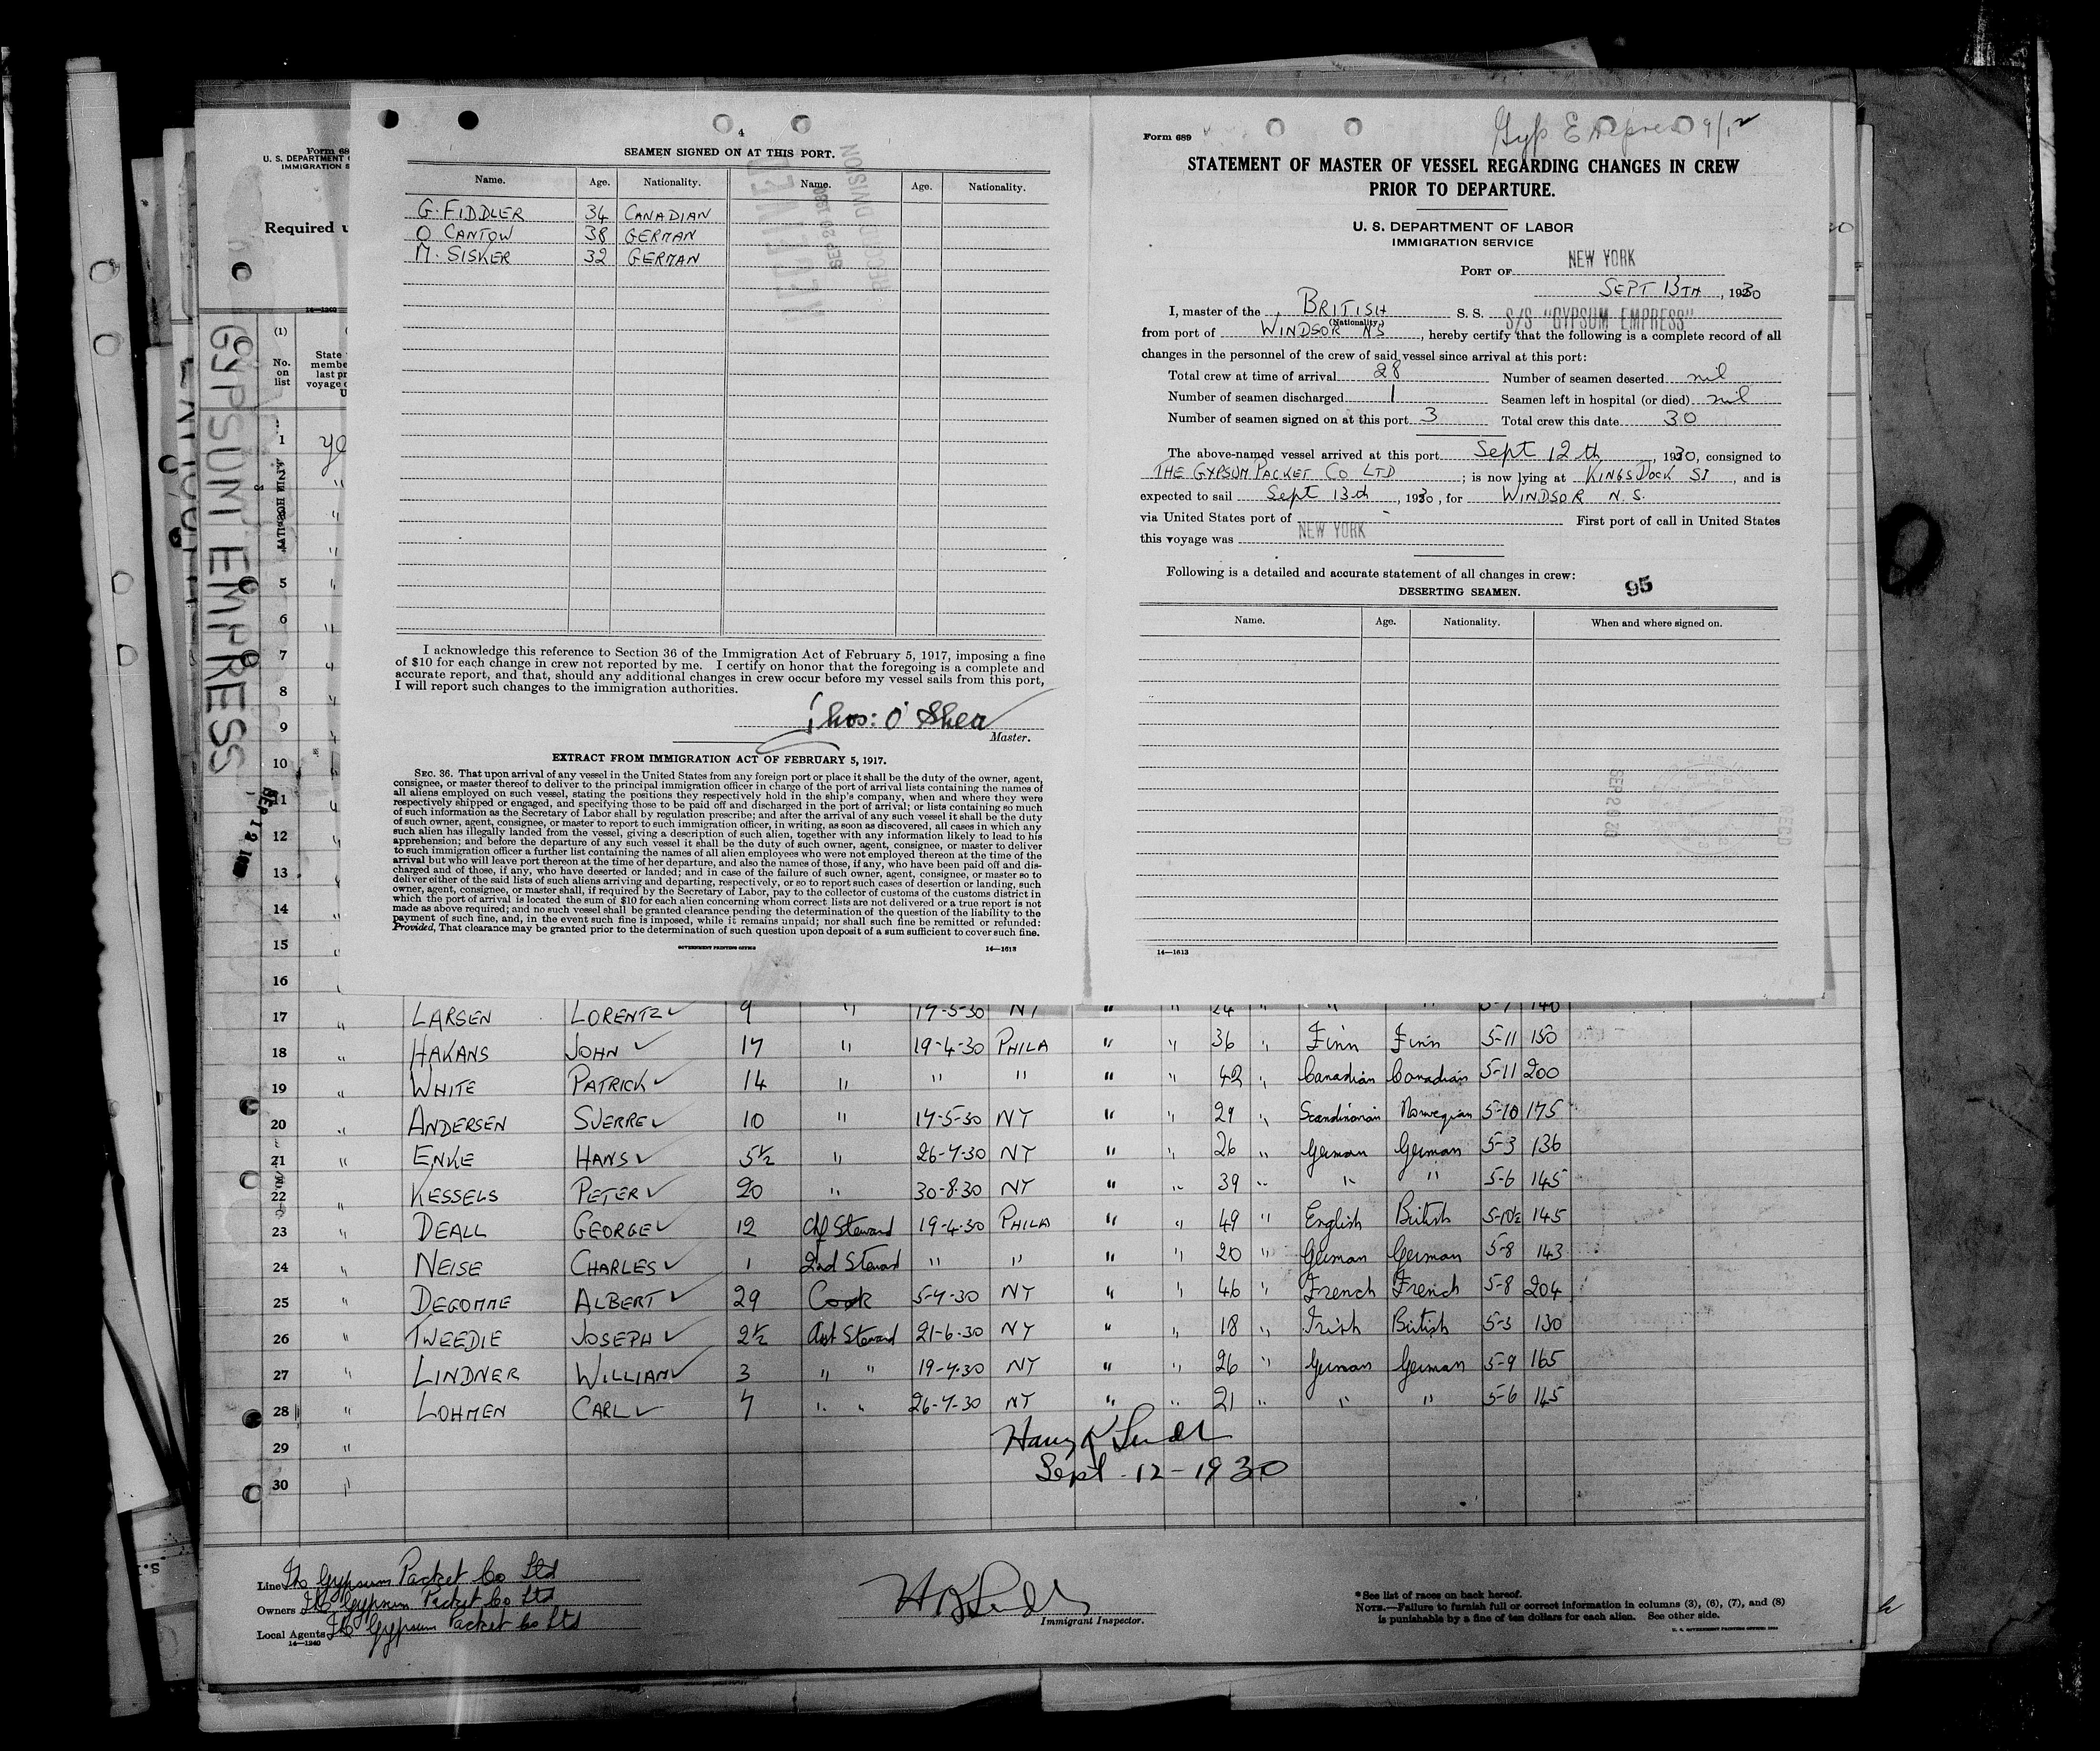 4
SEAMEN SIGNED ON AT THIS PORT.
Name. Age. Nationality. Name. Age. Nationality.
G. FIDDLER 34 CANADIAN
O CANTOW 38 GERMAN
M. SISKER 32 GERMAN
SEP 20 1930
RECORD DIVISION
I acknowledge this reference to Section 36 of the Immigration Act of February 5, 1917, imposing a fine
of $10 for each change in crew not reported by me. I certify on honor that the foregoing is a complete and
accurate report, and that, should any additional changes in crew occur before my vessel sails from this port,
I will report such changes to the immigration authorities.
Thos: O'Shea
Master.
EXTRACT FROM IMMIGRATION ACT OF FEBRUARY 5, 1917.
SEC. 36. That upon arrival of any vessel in the United States from any foreign port or place it shall be the duty of the owner, agent,
consignee, or master thereof to deliver to the principal immigration officer in charge of the port of arrival lists containing the names of
all aliens employed on such vessel, stating the positions they respectively hold in the ship's company, when and where they were
respectively shipped or engaged, and specifying those to be paid off and discharged in the port of arrival; or lists containing so much
of such information as the Secretary of Labor shall by regulation prescribe; and after the arrival of any such vessel it shall be the duty
of such owner, agent, consignee, or master to report to such immigration officer, in writing, as soon as discovered, all cases in which any
such alien has illegally landed from the vessel, giving a description of such alien, together with any information likely to lead to his
apprehension; and before the departure of any such vessel it shall be the duty of such owner, agent, consignee, or master to deliver
to such immigration officer a further list containing the names of all alien employees who were not employed thereon at the time of the
arrival but who will leave port thereon at the time of her departure, and also the names of those, if any, who have been paid off and dis-
charged and of those, if any, who have deserted or landed; and in case of the failure of such owner, agent, consignee, or master so to
deliver either of the said lists of such aliens arriving and departing, respectively, or so to report such cases of desertion or landing, such
owner, agent, consignee, or master shall, if required by the Secretary of Labor, pay to the collector of customs of the customs district in
which the port of arrival is located the sum of $10 for each alien concerning whom correct lists are not delivered or a true report is not
made as above required; and no such vessel shall be granted clearance pending the determination of the question of the liability to the
payment of such fine, and, in the event such fine is imposed, while it remains unpaid; nor shall such fine be remitted or refunded:
Provided, That clearance may be granted prior to the determination of such question upon deposit of a sum sufficient to cover such fine.
GOVERNMENT PRINTING OFFICE 14—1613
Gyp Empress 9/12
Form 689
STATEMENT OF MASTER OF VESSEL REGARDING CHANGES IN CREW
PRIOR TO DEPARTURE.
U. S. DEPARTMENT OF LABOR
IMMIGRATION SERVICE
PORT OF NEW YORK
SEPT 13TH, 1930
I, master of the BRITISH S. S. S/S "GYPSUM EMPRESS"
(Nationality)
from port of WINDSOR NS, hereby certify that the following is a complete record of all
changes in the personnel of the crew of said vessel since arrival at this port:
Total crew at time of arrival 28 Number of seamen deserted nil
Number of seamen discharged 1 Seamen left in hospital (or died) nil
Number of seamen signed on at this port 3 Total crew this date 30
The above-named vessel arrived at this port Sept 12th, 1930, consigned to
THE GYPSUM PACKET CO LTD; is now lying at KINGS DOCK SI, and is
expected to sail Sept 13th, 1930, for WINDSOR N.S.
via United States port of - First port of call in United States
this voyage was NEW YORK
Following is a detailed and accurate statement of all changes in crew:
95
DESERTING SEAMEN.
Name. Age. Nationality. When and where signed on.
SEP 20 30
REC'D
14—1613
Form 68
U. S. DEPARTMENT
IMMIGRATION S
Required u
14—1240
GYPSUM EMPRESS
SEP 12 193
(1)
No. on list
State
membe
last pr
voyage
U
1 ye
5 "
6 "
7 "
8 "
9 "
10 "
11 "
12 "
13 "
14 "
15 "
16
17 " LARSEN LORENTZ ✓ 9 " 17-5-30 NY " " 24 " " " 5-7 140
18 " HAKANS JOHN ✓ 17 " 19-4-30 PHILA " " 36 " Finn Finn 5-11 150
19 " WHITE PATRICK ✓ 14 " " " " " 42 " Canadian Canadian 5-11 200
20 " ANDERSEN SVERRE ✓ 10 " 17-5-30 NY " " 29 " Scandinavian Norwegian 5-10 175
21 " ENKE HANS ✓ 5½ " 26-7-30 NY " " 26 " German German 5-3 136
22 " KESSELS PETER ✓ 20 " 30-8-30 NY " " 39 " " " 5-6 145
23 " DEALL GEORGE ✓ 12 Chf Steward 19-4-30 PHILA " " 49 " English British 5-10½ 145
24 " NEISE CHARLES ✓ 1 2nd Steward " " " " 20 " German German 5-8 143
25 " DEGOMME ALBERT ✓ 29 Cook 5-7-30 NY " " 46 " French French 5-8 204
26 " TWEEDIE JOSEPH ✓ 2½ Asst Steward 21-6-30 NY " " 18 " Irish British 5-3 130
27 " LINDNER WILLIAM ✓ 3 " " 19-7-30 NY " " 26 " German German 5-9 165
28 " LOHMEN CARL ✓ 7 " " 26-7-30 NY " " 21 " " " 5-6 145
29 "
30 "
Sept-12-1930
Line The Gypsum Packet Co Ltd
Owners The Gypsum Packet Co Ltd
Local Agents The Gypsum Packet Co Ltd
14—1240
Immigrant Inspector.
*See list of races on back hereof.
NOTE.—Failure to furnish full or correct information in columns (3), (6), (7), and (8)
is punishable by a fine of ten dollars for each alien. See other side.
U. S. GOVERNMENT PRINTING OFFICE